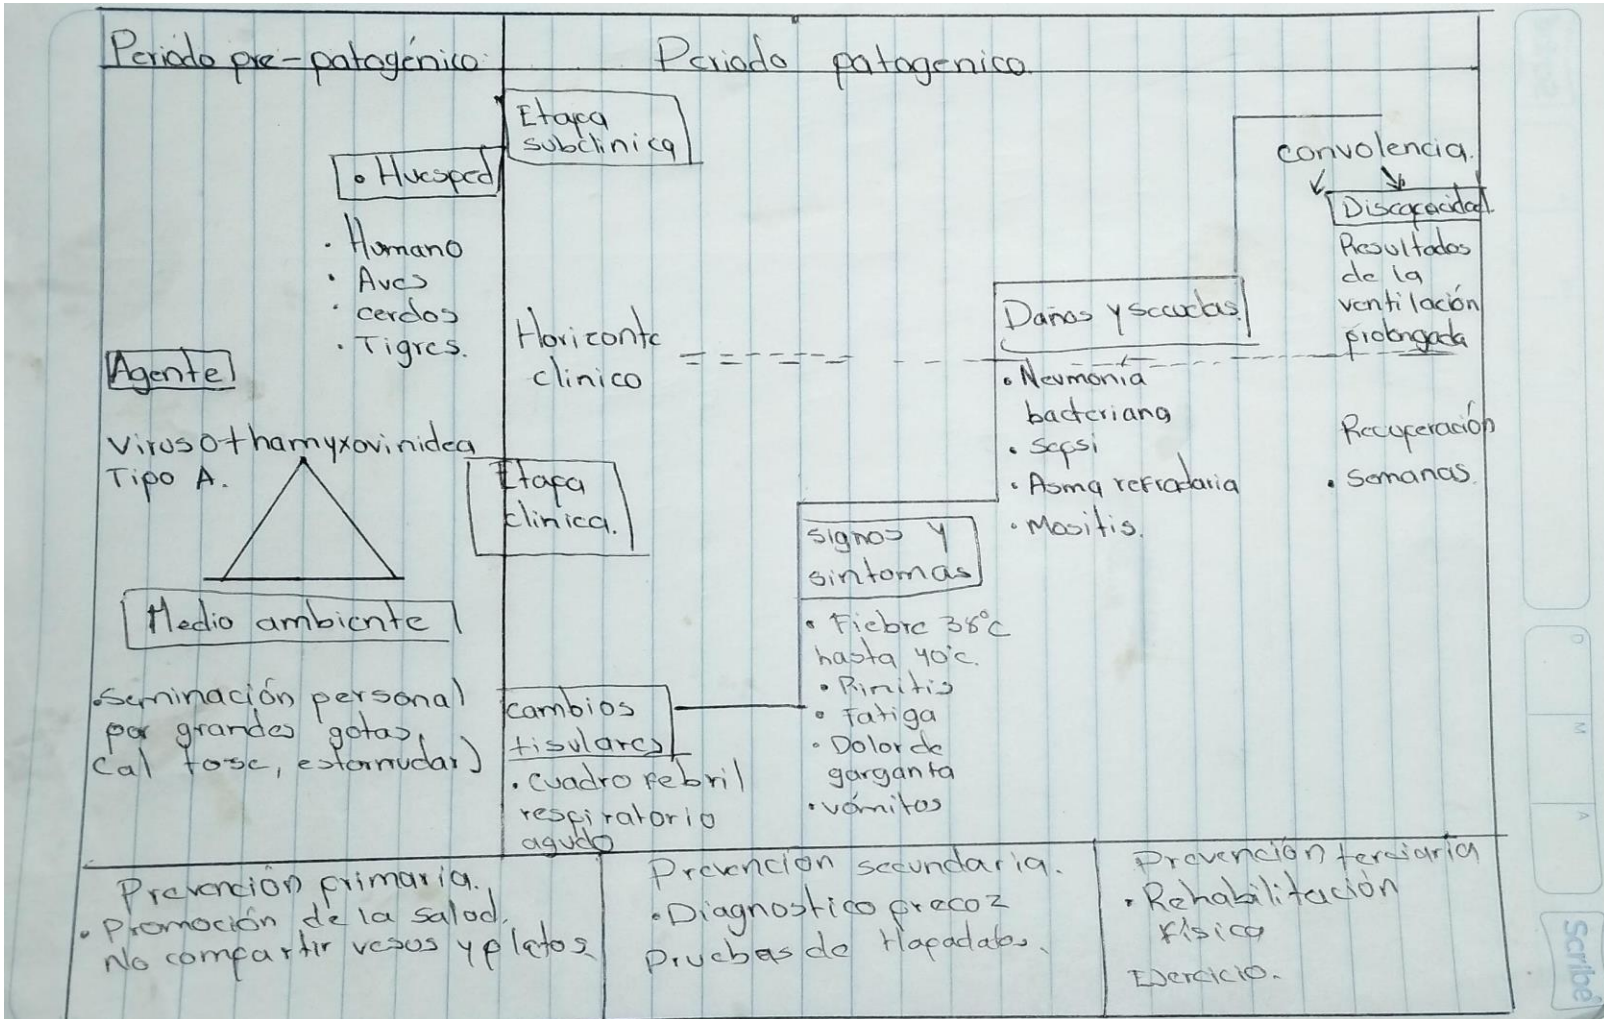 Periodo pre-patogénico
Periodo patogenico
Etapa
subclinica
• Huesped
• Humano
• Aves
• cerdos
• Tigres.
Agente
Virus Othamyxovinidea
Tipo A.
Medio ambiente
• Seminación personal
por grandes gotas,
(al tose, estornudar)
Horizonte
clinico
Etapa
clinica.
cambios
tisulares
• cuadro febril
respiratorio
agudo
signos y
sintomas
• Fiebre 38°C
hasta 40°c.
• Rinitis
• Fatiga
• Dolor de
garganta
• vómitos
Daños y secuelas
• Neumonia
bacteriana
• Sepsi
• Asma refradaria
• Mositis.
convolencia.
Discapacidad
Resultados
de la
ventilación
prolongada
Recuperación
• Semanas.
Prevención primaria.
• Promoción de la salud.
No compartir vasos y platos
Prevencion secundaria.
• Diagnostico precoz
Pruebas de
Prevención terciaria
• Rehabilitación
física
Ejercicio.
D
M
A
Scribe